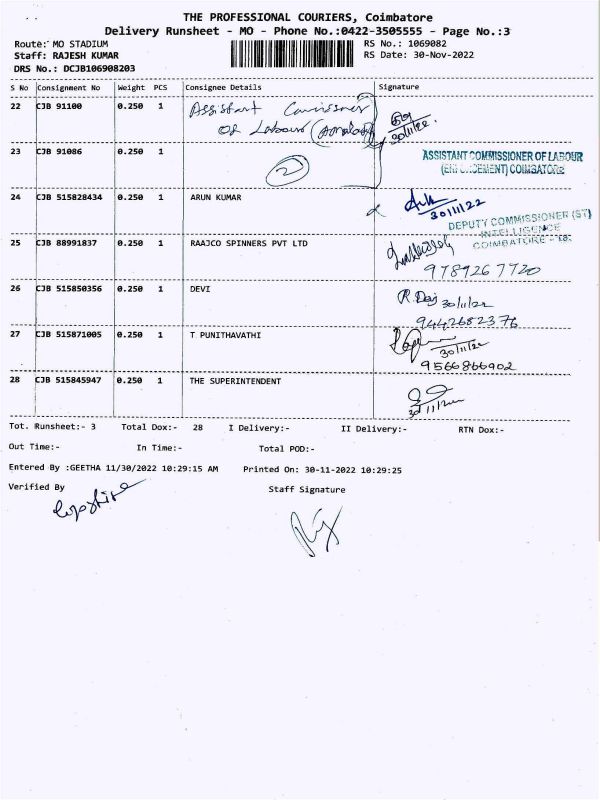 THE PROFESSIONAL COURIERS, Coimbatore
Delivery Runsheet - MO - Phone No.:0422-3505555 - Page No.:3
Route: MO STADIUM RS No.: 1069082
Staff: RAJESH KUMAR RS Date: 30-Nov-2022
DRS No.: DCJB106908203
S No Consignment No Weight PCS Consignee Details Signature
22 CJB 91100 0.250 1 Assistant Commissioner
Of Labour
30/11/22.
23 CJB 91086 0.250 1
2
ASSISTANT COMMISSIONER OF LABOUR
(ENFORCEMENT) COIMBATORE
24 CJB 515828434 0.250 1 ARUN KUMAR
30/11/22
DEPUTY COMMISSIONER (ST)
INTELLIGENCE
COIMBATORE - 18.
25 CJB 88991837 0.250 1 RAAJCO SPINNERS PVT LTD
9789267720
26 CJB 515850356 0.250 1 DEVI
R. Devi 30/11/22
9442682376
27 CJB 515871005 0.250 1 T PUNITHAVATHI
30/11/22
9566866902
28 CJB 515845947 0.250 1 THE SUPERINTENDENT
30/11/22
Tot. Runsheet:- 3 Total Dox:- 28 I Delivery:- II Delivery:- RTN Dox:-
Out Time:- In Time:- Total POD:-
Entered By :GEETHA 11/30/2022 10:29:15 AM Printed On: 30-11-2022 10:29:25
Verified By Staff Signature